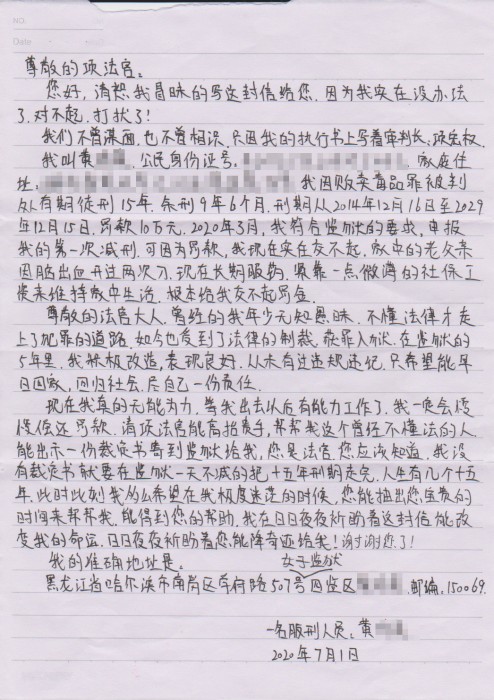 NO.
Date
尊敬的项法官：
您好，请恕我冒昧的写这封信给您．因为我实在没办法
了．对不起．打扰了！
我们不曾谋面．也不曾相识．只因我的执行书上写着审判长：项宏权．
我叫黄 公民身份证号： 家庭住
址： 我因贩卖毒品罪被判
处有期徒刑15年．余刑9年6个月．刑期从2014年12月16日至2029
年12月15日．罚款10万元．2020年3月，我符合监狱的要求，申报
我的第一次减刑．可因为罚款，我现在实在交不起．家中的老父亲
因脑出血开过两次刀．现在长期服药．紧靠一点微薄的社保工
资来维持家中生活．根本给我交不起罚金．
尊敬的法官大人．曾经的我年少无知愚昧．不懂法律才走
上了犯罪的道路．如今也受到了法律的制裁．获罪入狱．在监狱的
5年里．我积极改造，表现良好．从未有过违规违纪．只希望能早
日回家，回归社会．尽自己一份责任．
现在我真的无能为力．等我出去以后有能力工作了．我一定会慢
慢偿还罚款．请项法官能高抬贵手，帮帮我这个曾经不懂法的人．
能出示一份裁定书寄到监狱给我，您是法官您应该知道．我没
有裁定书就要在监狱一天不减的把十五年刑期走完．人生有几个十五
年．此时此刻我多么希望在我极度迷茫的时候．您能抽出您宝贵的
时间来帮帮我．能得到您的帮助．我在日日夜夜祈盼着这封信能改
变我的命运．日日夜夜祈盼着您能降奇迹给我！谢谢您了！
我的准确地址是： 女子监狱
黑龙江省哈尔滨市南岗区学府路507号四监区 邮编：150069．
一名服刑人员：黄
2020年7月1日